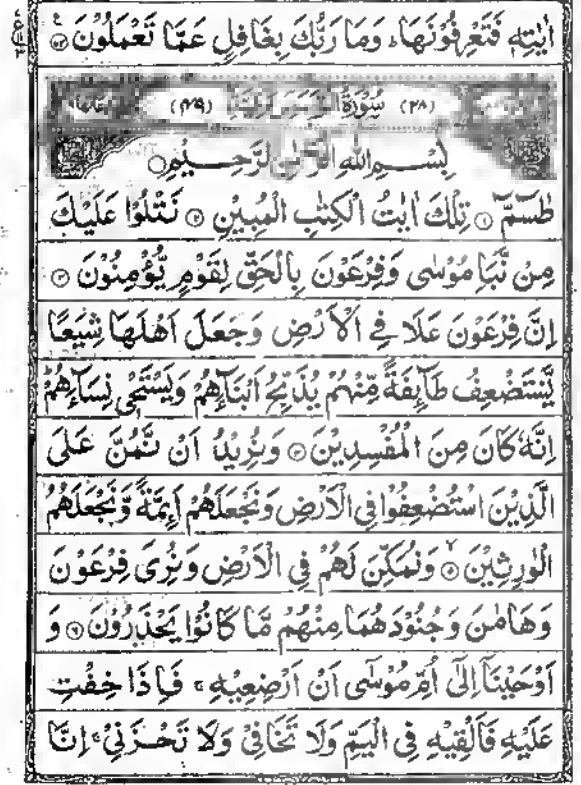 اٰيٰتِهٖ فَتَعْرِفُوْنَهَا ؕ وَمَا رَبُّكَ بِغَافِلٍ عَمَّا تَعْمَلُوْنَ ۝
(۲۸) سُوْرَةُ الْقَصَصِ مَكِّيَّةٌ (۴۹)
بِسْمِ اللهِ الرَّحْمٰنِ الرَّحِيْمِ ۝
طٰسٓمّٓ ۝۱ تِلْكَ اٰيٰتُ الْكِتٰبِ الْمُبِيْنِ ۝۲ نَتْلُوْا عَلَيْكَ
مِنْ نَّبَاِ مُوْسٰى وَفِرْعَوْنَ بِالْحَقِّ لِقَوْمٍ يُّؤْمِنُوْنَ ۝۳
اِنَّ فِرْعَوْنَ عَلَا فِى الْاَرْضِ وَجَعَلَ اَهْلَهَا شِيَعًا
يَّسْتَضْعِفُ طَآئِفَةً مِّنْهُمْ يُذَبِّحُ اَبْنَآءَهُمْ وَيَسْتَحْىٖ نِسَآءَهُمْ ؕ
اِنَّهٗ كَانَ مِنَ الْمُفْسِدِيْنَ ۝۴ وَنُرِيْدُ اَنْ نَّمُنَّ عَلَى
الَّذِيْنَ اسْتُضْعِفُوْا فِى الْاَرْضِ وَنَجْعَلَهُمْ اَئِمَّةً وَّنَجْعَلَهُمُ
الْوٰرِثِيْنَ ۝۵ وَنُمَكِّنَ لَهُمْ فِى الْاَرْضِ وَنُرِىَ فِرْعَوْنَ
وَهَامٰنَ وَجُنُوْدَهُمَا مِنْهُمْ مَّا كَانُوْا يَحْذَرُوْنَ ۝۶ وَ
اَوْحَيْنَاۤ اِلٰۤى اُمِّ مُوْسٰۤى اَنْ اَرْضِعِيْهِ ۚ فَاِذَا خِفْتِ
عَلَيْهِ فَاَلْقِيْهِ فِى الْيَمِّ وَلَا تَخَافِىْ وَلَا تَحْزَنِىْ ۚ اِنَّا